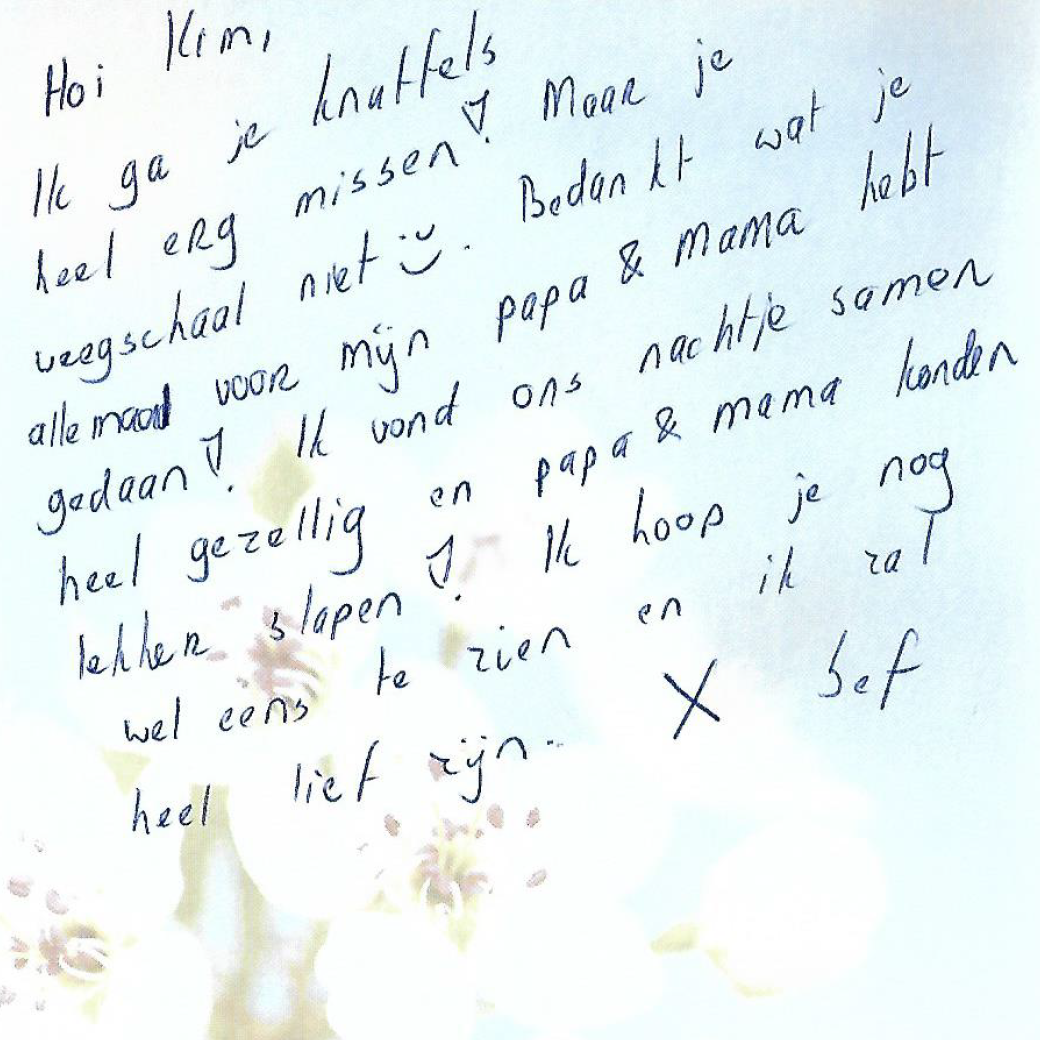 Hoi Kim,
Ik ga je knuffels
heel erg missen! Maar je
weegschaal niet :). Bedankt wat je
allemaal voor mijn papa & mama hebt
gedaan! Ik vond ons nachtje samen
heel gezellig en papa & mama konden
lekker slapen! Ik hoop je nog
wel eens te zien en ik zal
heel lief zijn.. X Sef